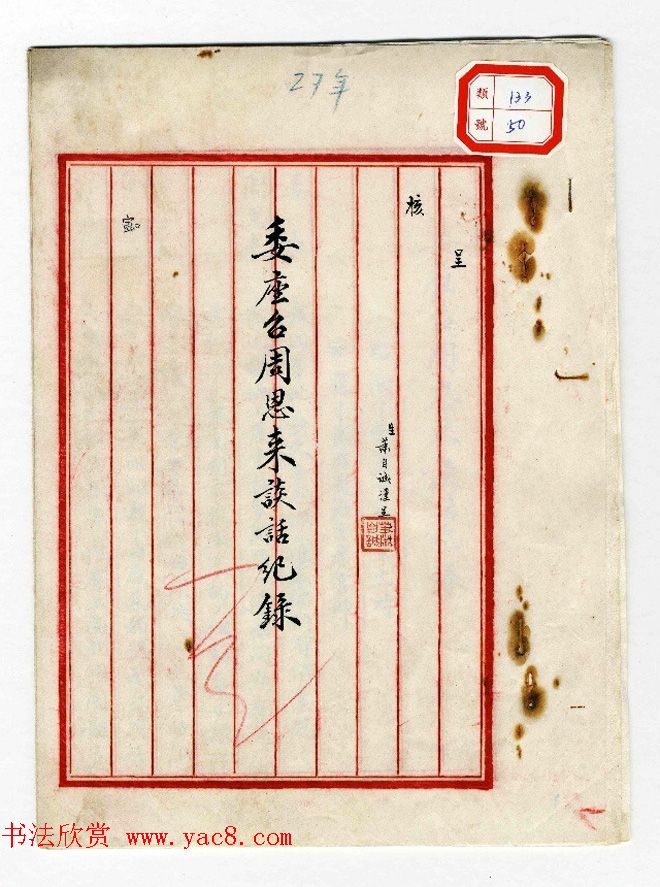 27年
類 133
號 50
呈
核
生 葉自誠謹呈
委座召周恩来談話纪錄
密
书法欣赏 www.yac8.com